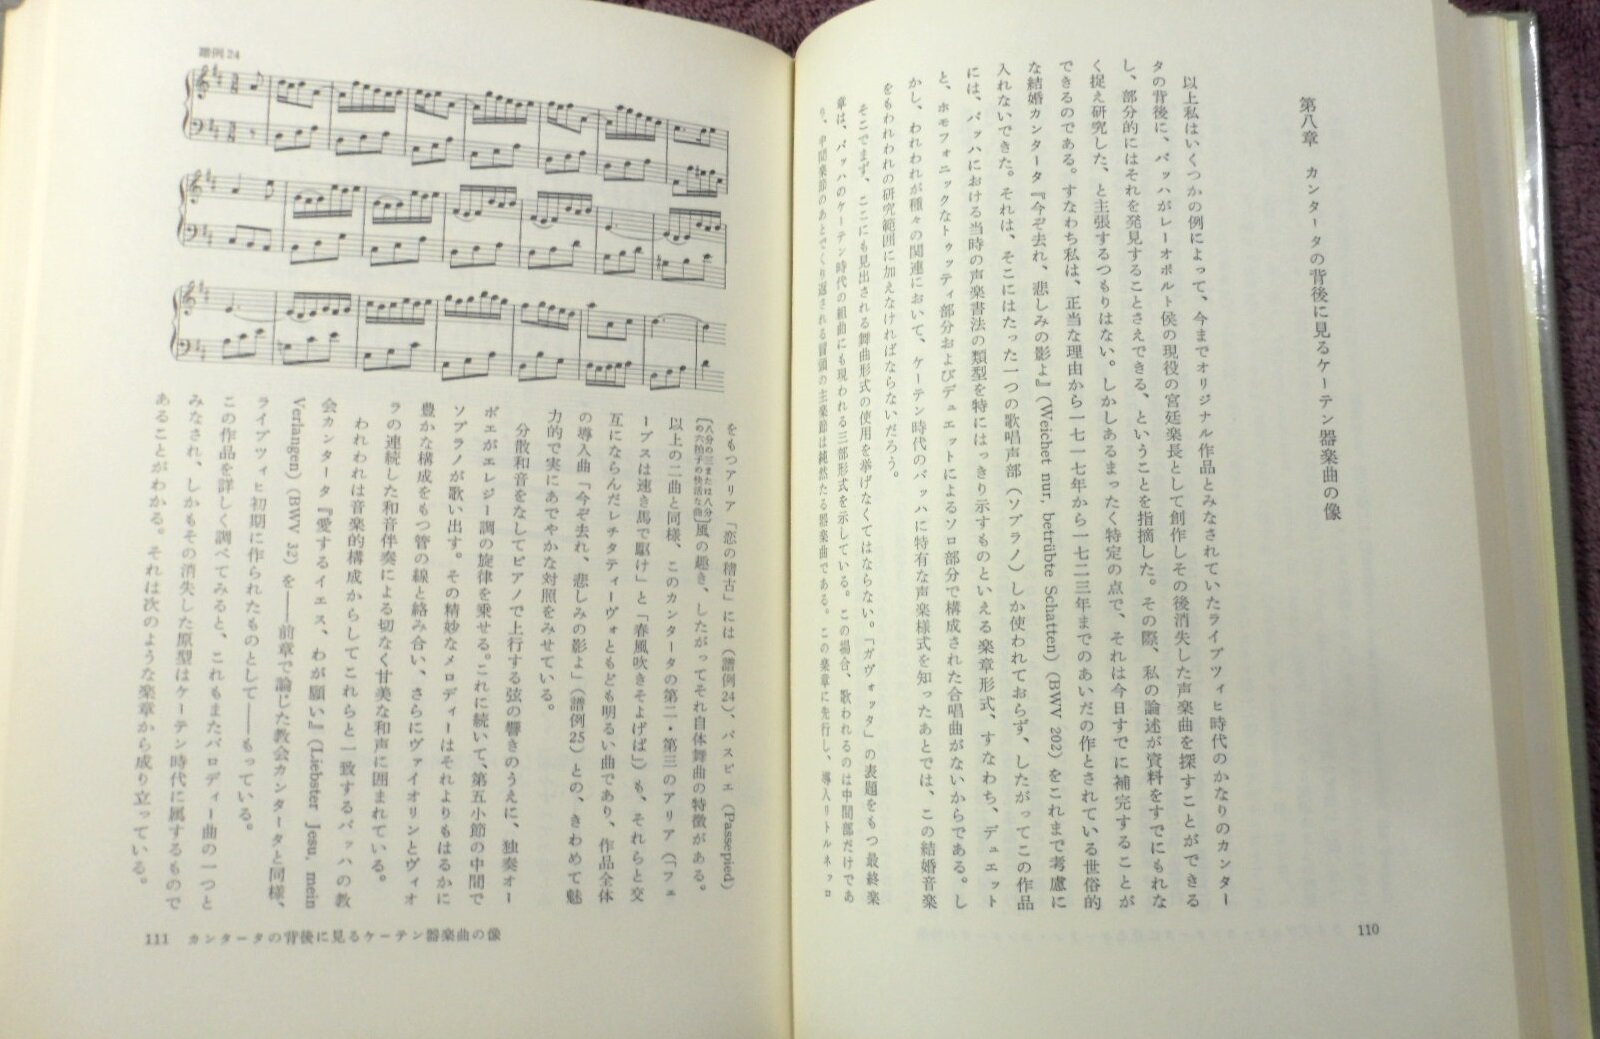 第八章　カンタータの背後に見るケーテン器楽曲の像
以上私はいくつかの例によって、今までオリジナル作品とみなされていたライプツィヒ時代のかなりのカンター
タの背後に、バッハがレーオポルト侯の現役の宮廷楽長として創作しその後消失した声楽曲を探すことができる
し、部分的にはそれを発見することさえできる、ということを指摘した。その際、私の論述が資料をすでにもれな
く捉え研究した、と主張するつもりはない。しかしあるまったく特定の点で、それは今日すでに補完することが
できるのである。すなわち私は、正当な理由から一七一七年から一七二三年までのあいだの作とされている世俗的
な結婚カンタータ『今ぞ去れ、悲しみの影よ』(Weichet nur, betrübte Schatten)(BWV 202)をこれまで考慮に
入れないできた。それは、そこにはたった一つの歌唱声部（ソプラノ）しか使われておらず、したがってこの作品
には、バッハにおける当時の声楽書法の類型を特にはっきり示すものといえる楽章形式、すなわち、デュエット
と、ホモフォニックなトゥッティ部分およびデュエットによるソロ部分で構成された合唱曲がないからである。し
かし、われわれが種々の関連において、ケーテン時代のバッハに特有な声楽様式を知ったあとでは、この結婚音楽
をもわれわれの研究範囲に加えなければならないだろう。
そこでまず、ここにも見出される舞曲形式の使用を挙げなくてはならない。「ガヴォッタ」の表題をもつ最終楽
章は、バッハのケーテン時代の組曲にも現われる三部形式を示している。この場合、歌われるのは中間部だけであ
り、中間楽節のあとでくり返される冒頭の主楽節は純然たる器楽曲である。この楽章に先行し、導入リトルネッロ
110
譜例24
をもつアリア「恋の稽古」には（譜例24）、パスピエ(Passepied)
〔八分の三または八分の六拍子の快活な曲〕風の趣き、したがってそれ自体舞曲の特徴がある。
以上の二曲と同様、このカンタータの第二・第三のアリア（「フェ
ーブスは速き馬で駆け」と「春風吹きそよげば」）も、それらと交
互にならんだレチタティーヴォともども明るい曲であり、作品全体
の導入曲「今ぞ去れ、悲しみの影よ」（譜例25）との、きわめて魅
力的で実にあでやかな対照をみせている。
分散和音をなしてピアノで上行する弦の響きのうえに、独奏オー
ボエがエレジー調の旋律を乗せる。これに続いて、第五小節の中間で
ソプラノが歌い出す。その精妙なメロディーはそれよりもはるかに
豊かな構成をもつ管の線と絡み合い、さらにヴァイオリンとヴィオ
ラの連続した和音伴奏による切なく甘美な和声に囲まれている。
われわれは音楽的構成からしてこれらと一致するバッハの教
会カンタータ『愛するイエス、わが願い』(Liebster Jesu, mein
Verlangen)(BWV 32)を――前章で論じた教会カンタータと同様、
ライプツィヒ初期に作られたものとして――もっている。
この作品を詳しく調べてみると、これもまたパロディー曲の一つと
みなされ、しかもその消失した原型はケーテン時代に属するもので
あることがわかる。それは次のような楽章から成り立っている。
111　カンタータの背後に見るケーテン器楽曲の像